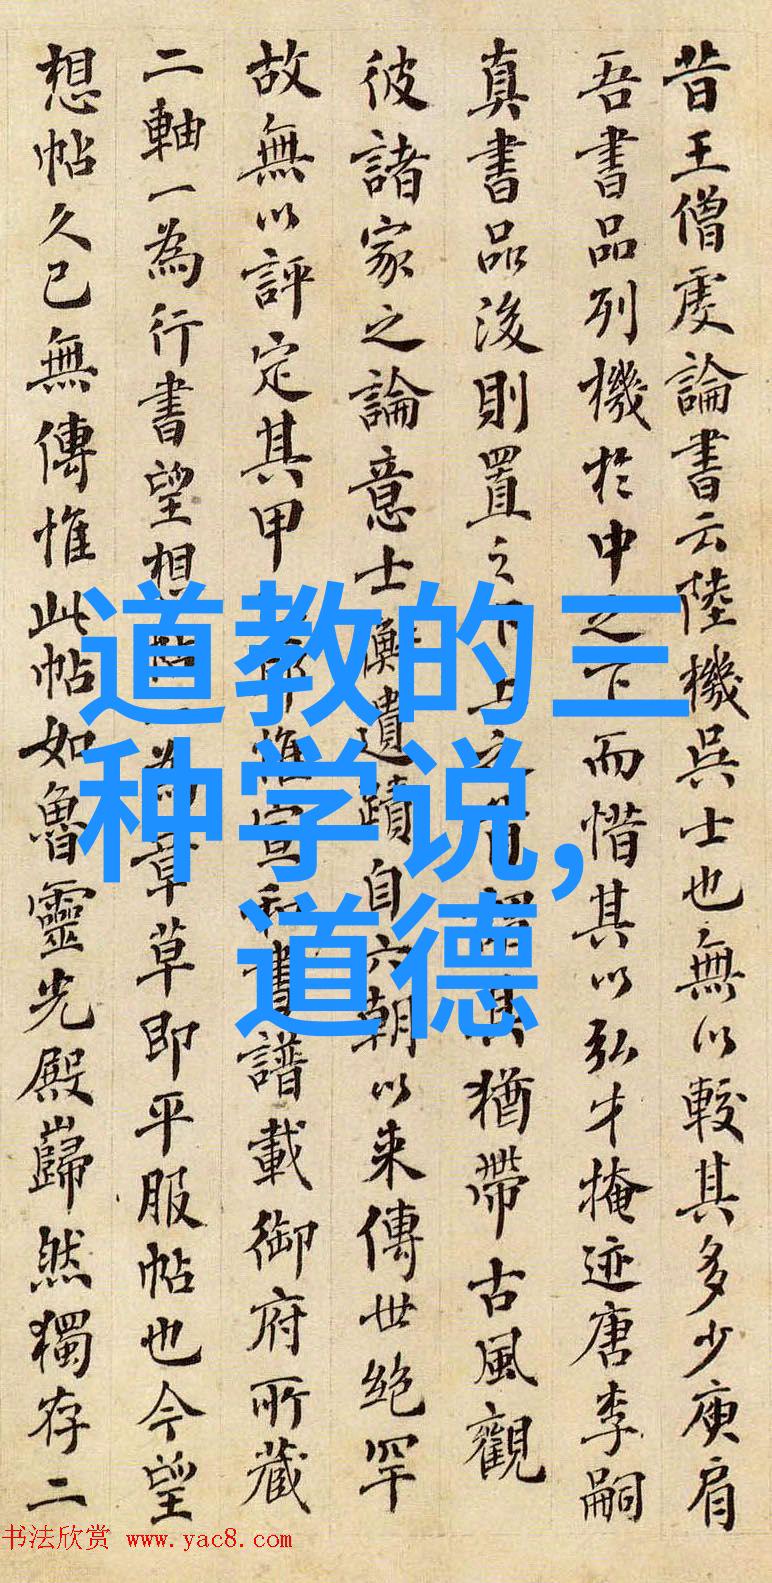 昔王僧虔論書云陸機吳士也無以較其多少庾肩
吾書品列機於中之下而惜其以弘才掩迹唐李嗣
真書品後則置之下上之其猶帶古風觀
彼諸家之論意士衡遺蹟自六朝以来傳世絶罕
故無以評定其甲惟宣和書譜載御府所藏
二軸一為行書望想帖為章草即平服帖也今望
想帖久已無傳惟此帖如魯靈光殿巋然獨存二
道教的三
种学说,
道德
书法欣赏 www.yac8.com